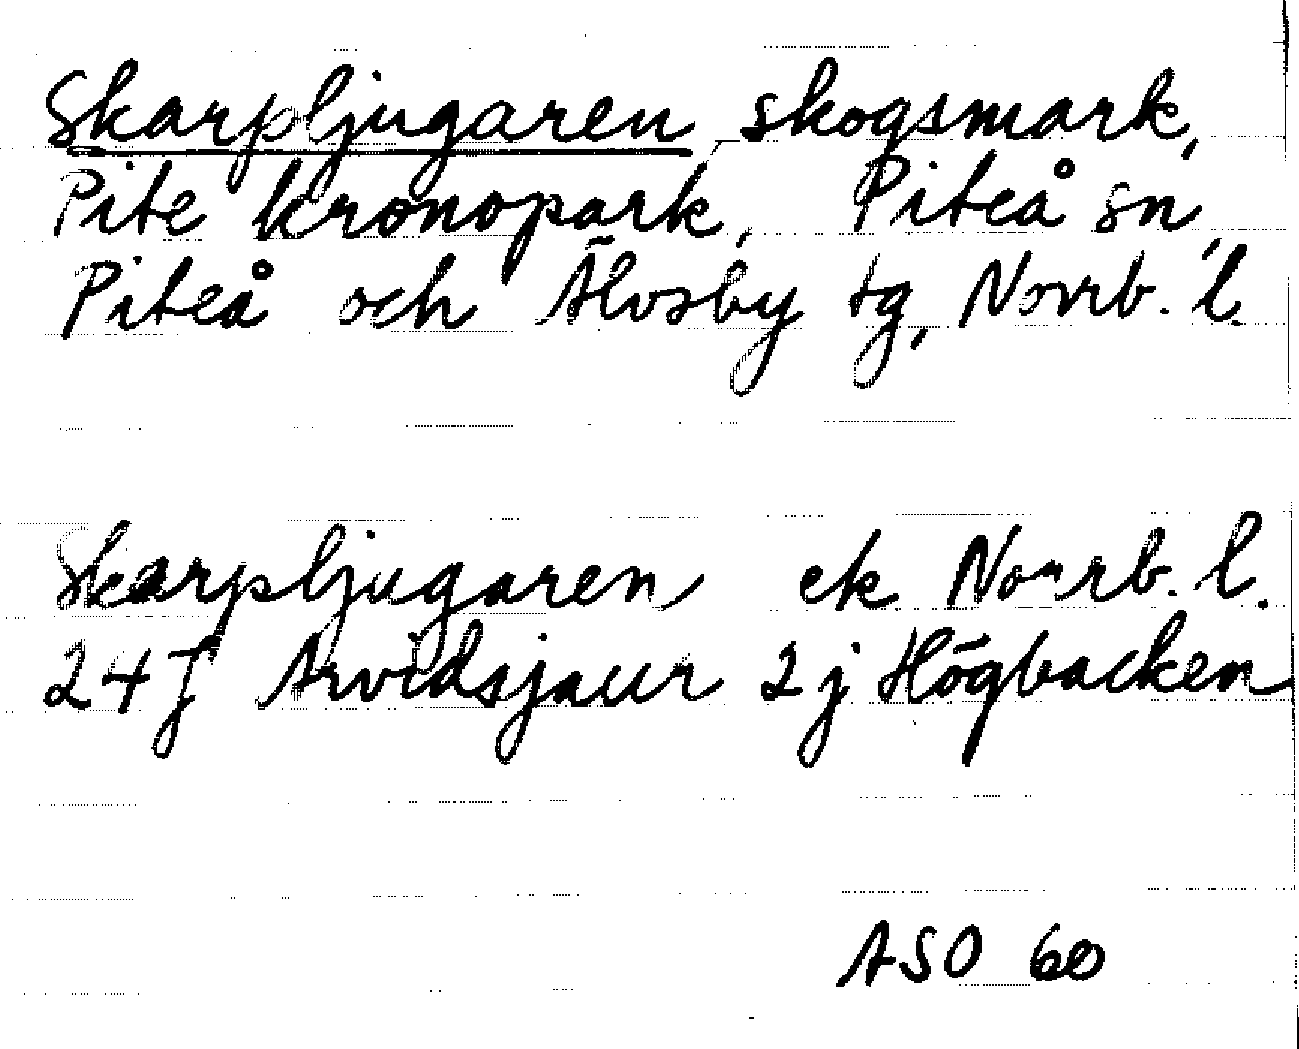 Skarpljugaren skogsmark,
Pite kronopark, Piteå sn,
Piteå och Älvsby tg, Norrb. l.
Skarpljugaren ek Norrb. l.
24 f Arvidsjaur 2 j Högbacken
ASO 60